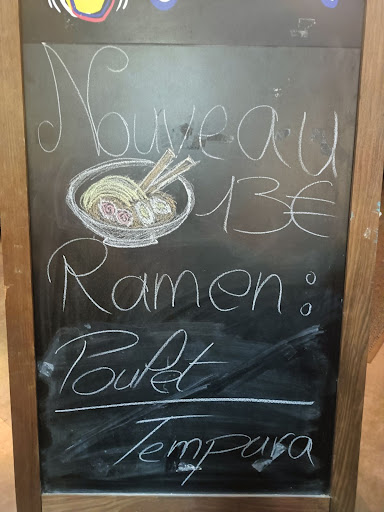 Nouveau
13€
Ramen :
Poulet
Tempura